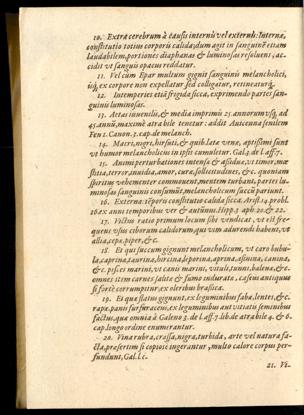 10. Extra cerebrum à causis internis vel externis: Interna,
constitutio totius corporis calida, dum agit in sanguinē etiam
laudabilem, portiones diaphanas & luminosas resoluens, ac-
cidit vt sanguis opacus reddatur.
11. Vel cùm Epar multum gignit sanguinis melancholici,
isq́, ex corpore non expellatur sed colligatur, retineaturq́.
12. Intemperies etiā frigida sicca, exprimendo partes san-
guinis luminosas.
13. Aetas iuuenilis, & media imprimis 25. annorum vsq, ad
45. annū, maximè atra bile tenetur: addit Auicenna senilem
Fen 1. Canon. 3. cap. de melanch.
14. Macri, nigri, hirsuti, & quib. lata vena, aptissimi sunt
vt humor melancholicus in ipsis cumuletur. Gal. 3. de l. aff. 7.
15. Animi perturbationes intensa & assidua, vt timor, mœ
stitia, terror, inuidia, amor, cura, sollicitudines, &c. quoniam
spiritus vehementer commouent, mentem turbant, partes lu-
minosas sanguinis consumūt, melancholicum succū pariunt.
16. Externa: tēporis constitutio calida sicca. Arist. 14. probl.
16. ex anni temporibus ver & autūnus. Hipp. 3. aph. 20. & 22.
17. Victus ratio primum locum sibi vendicat, vt est fre-
quens vsus ciborum calidorum, qui vim adurendi habent, vt
allia, cepa, piper, &c.
18. Et qui succum gignunt melancholicum, vt caro bubu-
la, caprina, taurina, hircina, leporina, aprina, asinina, canina,
&c. pisces marini, vt canis marini, vituli, tunni, balena, &c.
omnes item carnes salita & fumo indurata, caseus antiquus
si fortè corrumpitur, ex oleribus brassica.
19. Et qua flatus gignunt, ex leguminibus faba, lentes, &c.
rapa, panis furfuraceus, ex leguminibus aut vitiatis seminibus
factus, qua omnia à Galeno 3. de l. aff. 7. lib. de atra bile 4. & 6.
cap. longo ordine enumerantur.
20. Vina rubra, crassa, nigra, turbida, arte vel natura fa-
cta, præsertim si copiosè ingerantur, multo calore corpus per-
fundunt, Gal. l. c.
21. Vi-